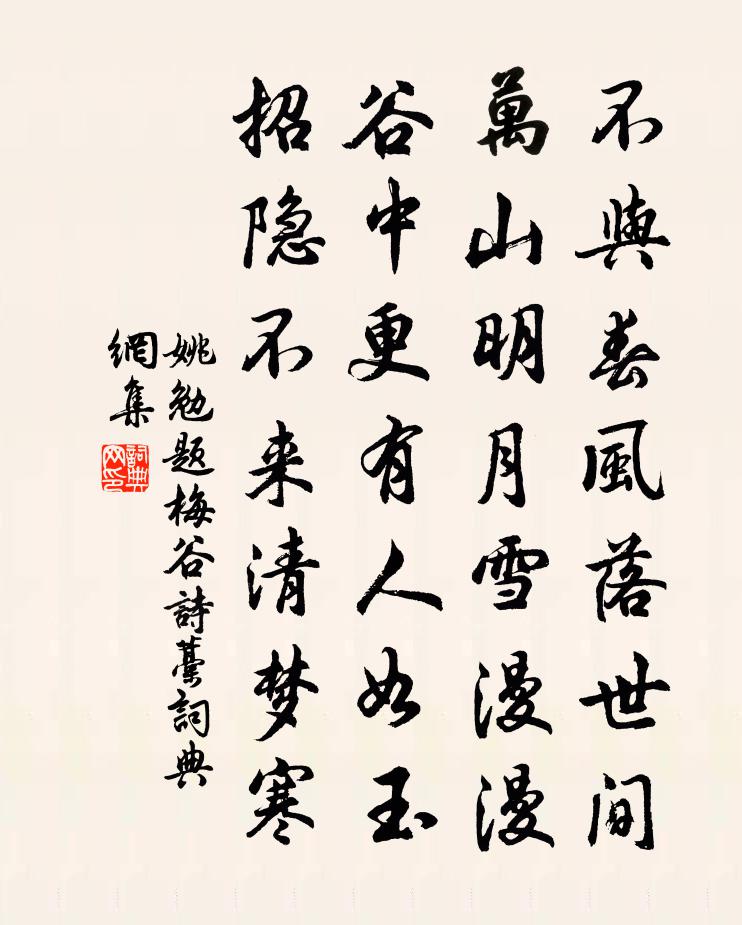 不與春風落世間
萬山明月雪漫漫
谷中更有人如玉
招隐不来清梦寒
姚勉题梅谷詩藁詞典
網集
詞典网印